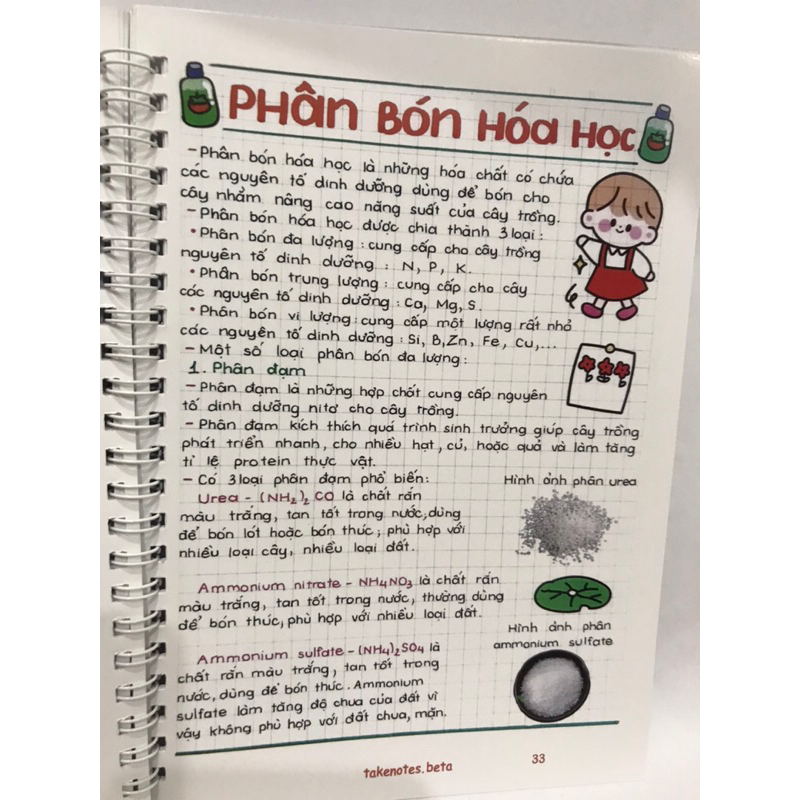 PHÂN BÓN HÓA HỌC
– Phân bón hóa học là những hóa chất có chứa
các nguyên tố dinh dưỡng dùng để bón cho
cây nhằm nâng cao năng suất của cây trồng.
– Phân bón hóa học được chia thành 3 loại:
• Phân bón đa lượng: cung cấp cho cây trồng
nguyên tố dinh dưỡng: N, P, K.
• Phân bón trung lượng: cung cấp cho cây
các nguyên tố dinh dưỡng: Ca, Mg, S.
• Phân bón vi lượng: cung cấp một lượng rất nhỏ
các nguyên tố dinh dưỡng: Si, B, Zn, Fe, Cu,...
– Một số loại phân bón đa lượng:
1. Phân đạm
– Phân đạm là những hợp chất cung cấp nguyên
tố dinh dưỡng nitơ cho cây trồng.
– Phân đạm kích thích quá trình sinh trưởng giúp cây trồng
phát triển nhanh, cho nhiều hạt, củ, hoặc quả và làm tăng
tỉ lệ protein thực vật.
– Có 3 loại phân đạm phổ biến:
Hình ảnh phân urea
Urea – (NH₂)₂CO là chất rắn
màu trắng, tan tốt trong nước, dùng
để bón lót hoặc bón thúc; phù hợp với
nhiều loại cây, nhiều loại đất.
Ammonium nitrate – NH₄NO₃ là chất rắn
màu trắng, tan tốt trong nước, thường dùng
để bón thúc, phù hợp với nhiều loại đất.
Hình ảnh phân
ammonium sulfate
Ammonium sulfate – (NH₄)₂SO₄ là
chất rắn màu trắng, tan tốt trong
nước, dùng để bón thúc. Ammonium
sulfate làm tăng độ chua của đất vì
vậy không phù hợp với đất chua, mặn.
takenotes.beta
33